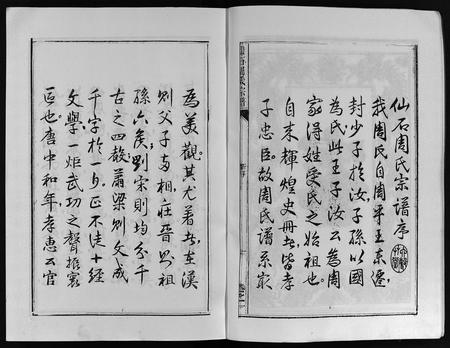 仙石周氏宗譜序
我周氏自周平王東遷
封少子於汝子孫以國
為氏此王子汝公為周
家得姓受氏之始祖也
自来輝煌史冊者皆孝
子忠臣故周氏譜系最
為美觀其尤著者在漢
則父子為相在晉則祖
孫六矣劉宋則均分千
古之四聲蕭梁則文成
千字於一夕正不徒十經
文學一炬武功之聲振寰
區也唐中和年孝惠公官